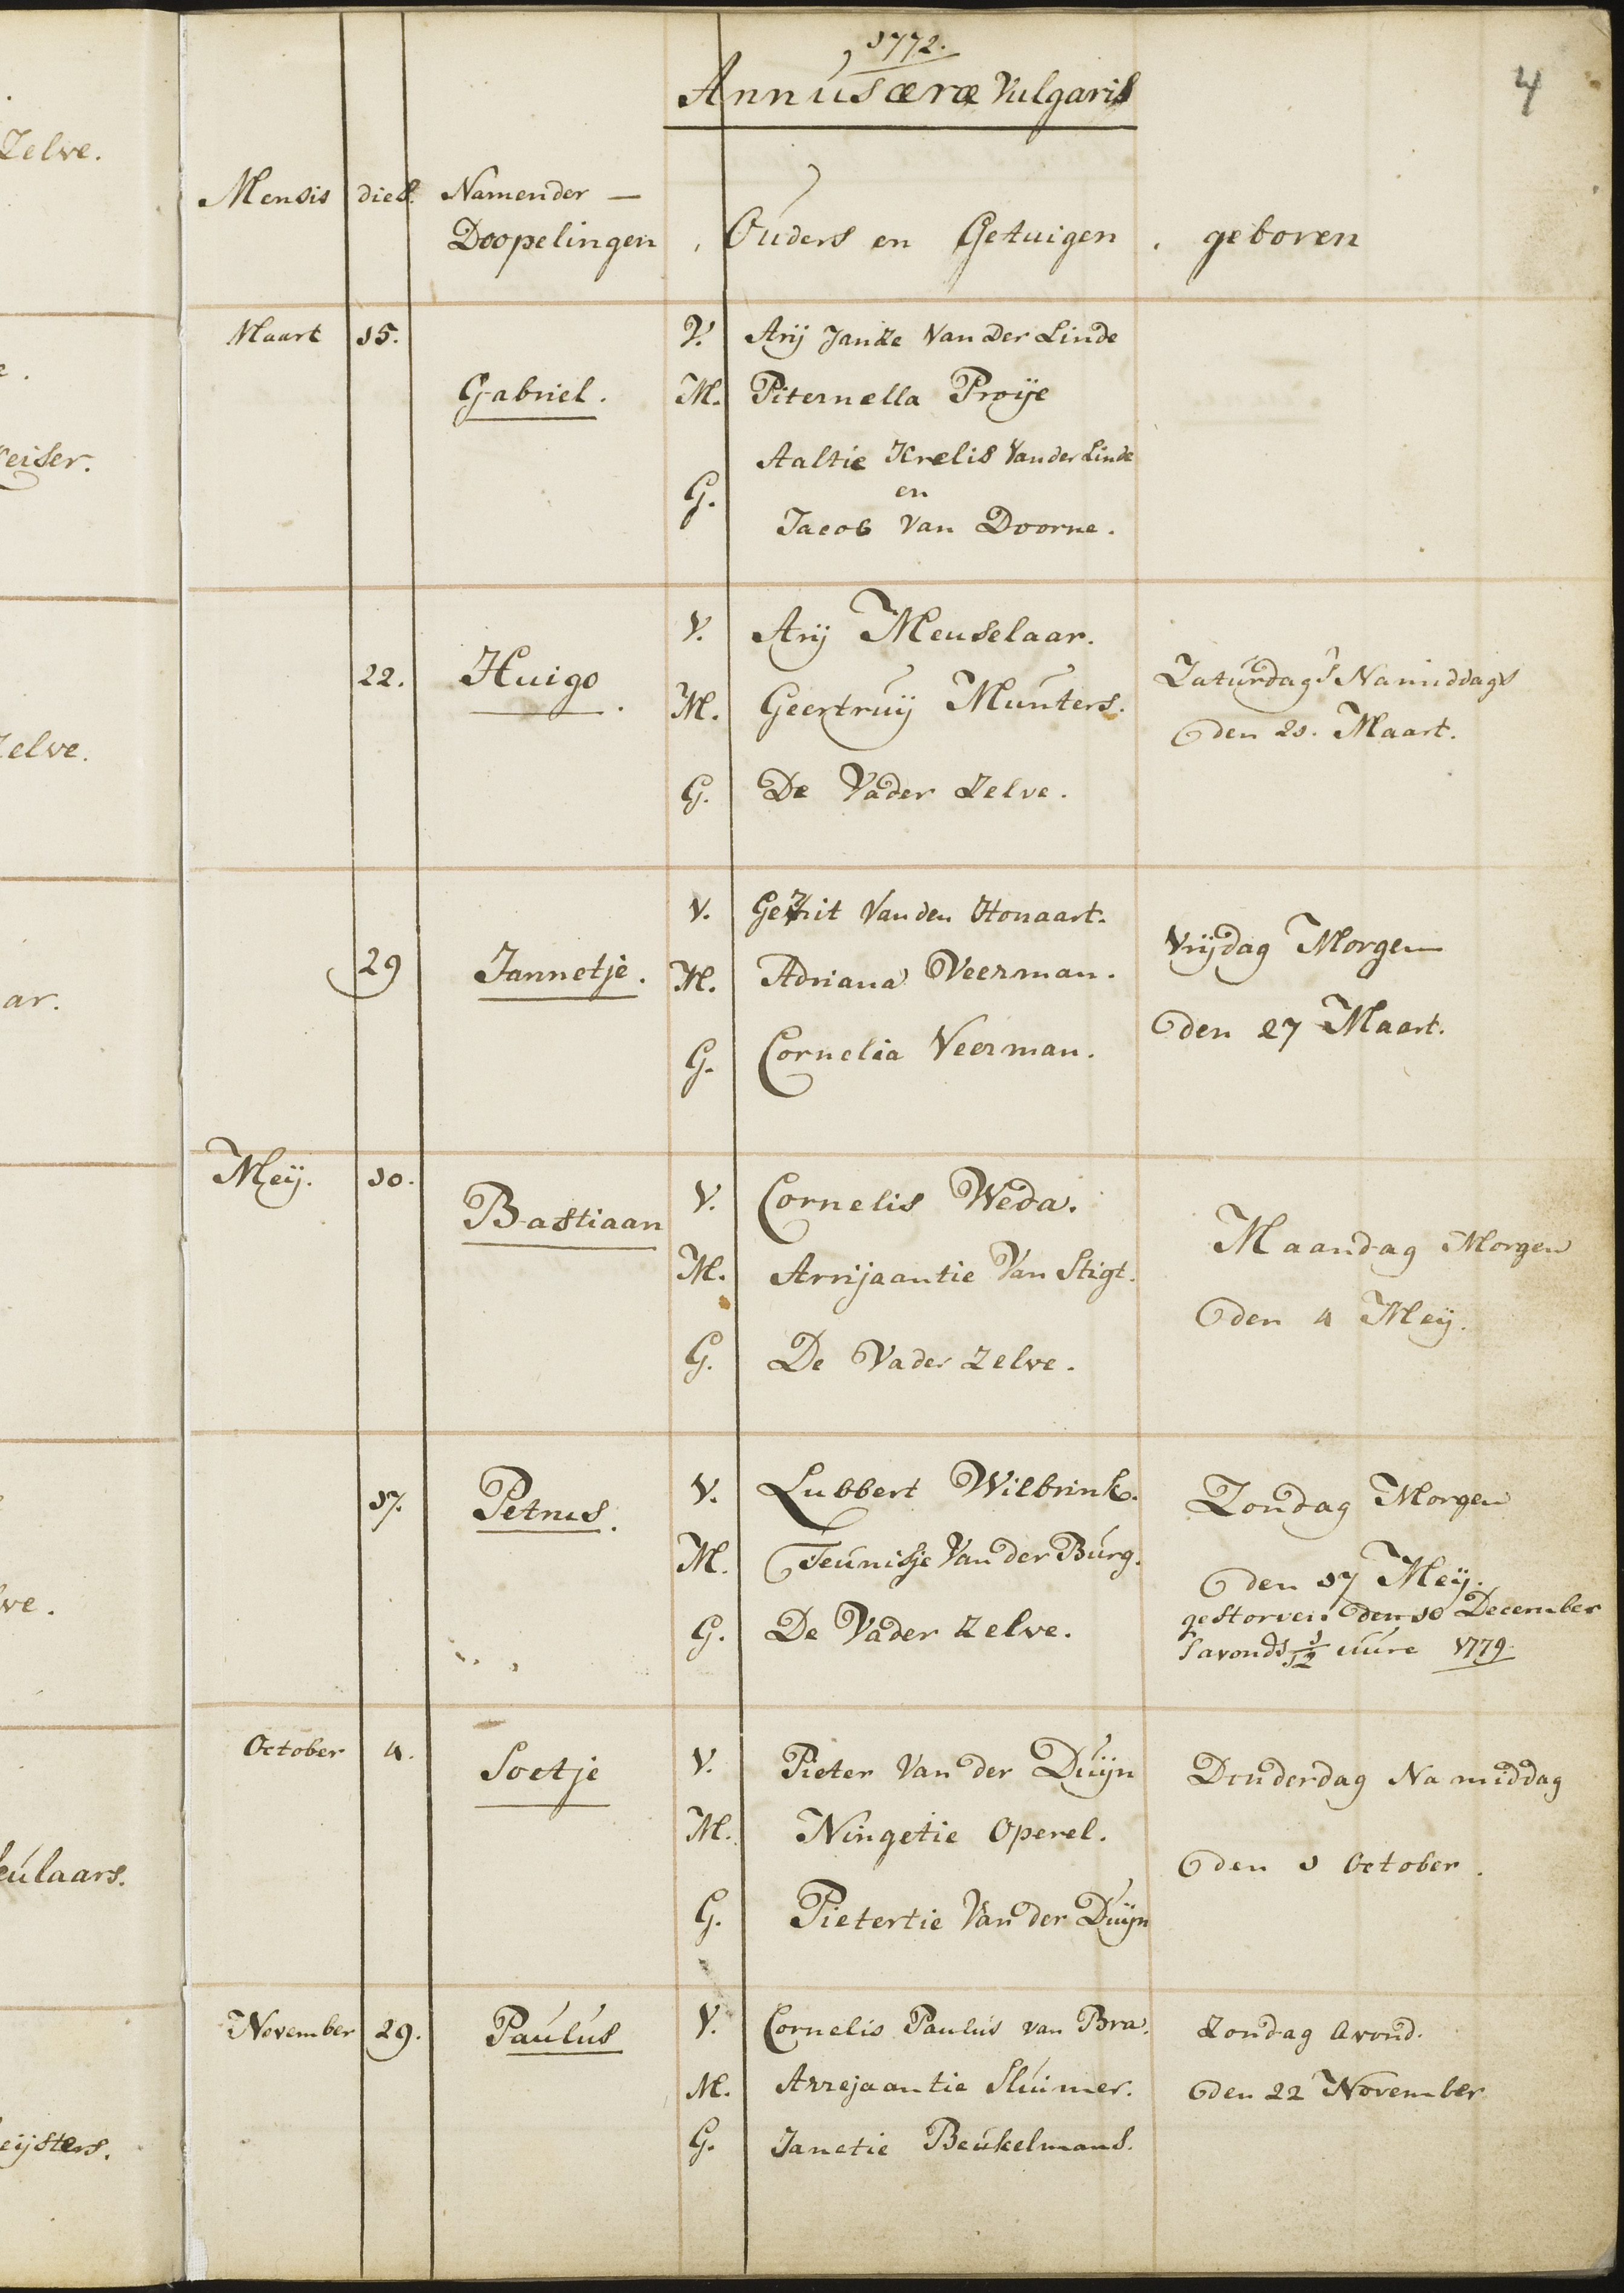 Zelve.
eiser.
Zelve.
ar.
ve.
eulaars.
eijsters.
4
1772.
Annus æræ Vulgaris
Mensis dies. Namen der —
Doopelingen, Ouders en Getuigen. geboren
Maart 15. V. Arij Janze Van der Linde
Gabriel. M. Piternella Proije
Aaltie Krelis Van der Linde
G. en
Jacob Van Doorne.
V. Arij Meuselaar.
22. Huigo. M. Geertruij Munters. Zaturdag's Namiddags
den 21. Maart.
G. De Vader Zelve.
V. Gerrit Van den Honaart.
29 Jannetje. M. Adriana Veerman. Vrijdag Morgen
G. Cornelia Veerman. den 27 Maart.
Meij. 10. Bastiaan V. Cornelis Weda. Maandag Morgen
M. Arrijaantie Van Stigt. den 4 Meij.
G. De Vader Zelve.
17. Petrus. V. Lubbert Wilbrink. Zondag Morgen
M. Teunisje Van der Burg. den 17 Meij.
G. De Vader Zelve. gestorven den 10 December
s'avonds 1/12 uure 1779.
October 4. Soetje V. Pieter Van der Duijn Donderdag Namiddag
M. Ningetie Operel. den 1 October.
G. Pietertie Van der Duijn
November 29. Paulus V. Cornelis Paulus van Bra. Zondag Avond.
M. Arrejaantie Sluimer. den 22 November
G. Janetie Beukelmans.